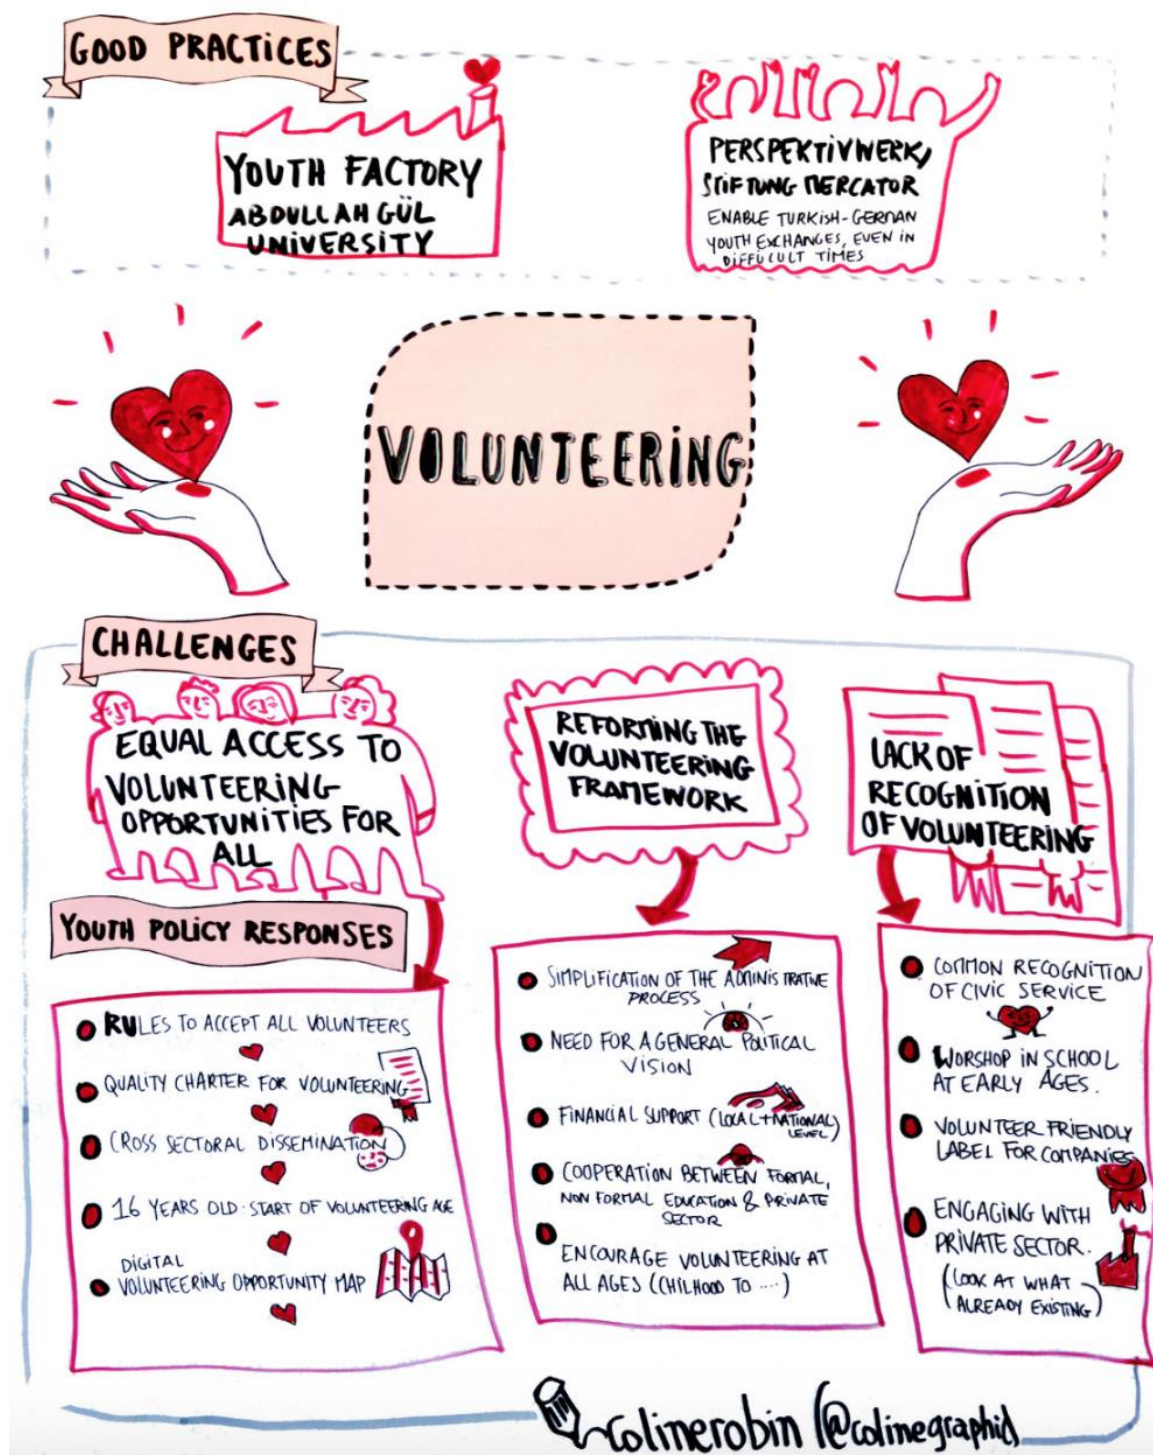 GOOD PRACTiCES
YOUTH FACTORY
ABDULLAH GÜL
UNiVERSiTY
PERSPEKTiVWERK,
STiFTUNG MERCATOR
ENABLE TURKiSH-GERMAN
YOUTH EXCHANGES, EVEN iN
DiFFUCULT TIMES
VOLUNTEERiNG
CHALLENGES
EQUAL ACCESS TO
VOLUNTEERiNG
OPPORTUNiTiES FOR
ALL
REFORMiNG THE
VOLUNTEERiNG
FRAMEWORK
LACK OF
RECOGNiTiON
OF VOLUNTEERiNG
YOUTH POLiCY RESPONSES
RULES TO ACCEPT ALL VOLUNTEERS
QUALiTY CHARTER FOR VOLUNTEERiNG
CROSS SECTORAL DISSEMiNATiON
16 YEARS OLD: START OF VOLUNTEERiNG AGE
DiGiTAL
VOLUNTEERiNG OPPORTUNiTY MAP
SiMPLiFiCATiON OF THE ADMiNiSTRATIVE
PROCESS
NEED FOR A GENERAL POLiTiCAL
ViSiON
FiNANCiAL SUPPORT (LOCAL+NATiONAL
LEVEL)
COOPERATiON BETWEEN FORMAL,
NON FORMAL EDUCATiON & PRiVATE
SECTOR
ENCOURAGE VOLUNTEERiNG AT
ALL AGES (CHiLHOOD TO ....)
COMMON RECOGNiTiON
OF CiViC SERViCE
WORSHOP iN SCHOOL
AT EARLY AGES.
VOLUNTEER FRiENDLY
LABEL FOR COMPANiES
ENGAGiNG WiTH
PRiVATE SECTOR.
(LOOK AT WHAT
ALREADY EXiSTiNG)
Colinerobin (@colinegraphic)